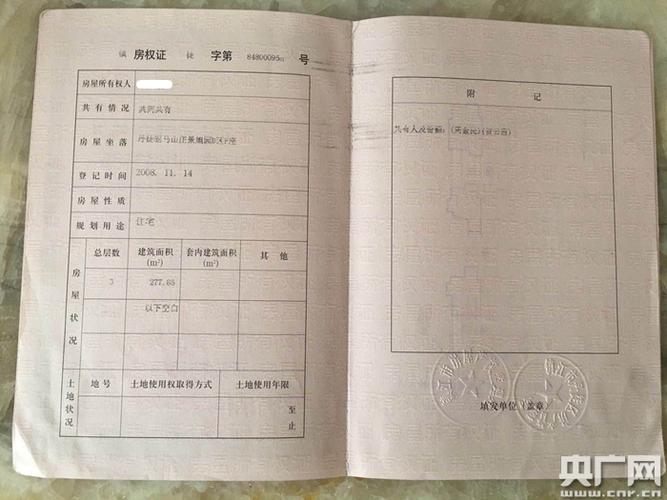 镇 房权证 徒 字第 84800095 号
房屋所有权人
共有情况 共同共有
房屋坐落
登记时间 2008.11.14
房屋性质
规划用途 住宅
房屋状况
总层数 建筑面积(m²) 套内建筑面积(m²) 其他
3 277.65
以下空白
土地状况
地号 土地使用权取得方式 土地使用年限
至
止
附 记
共有人及份额:
填发单位(盖章)
央广网
www.cnr.cn